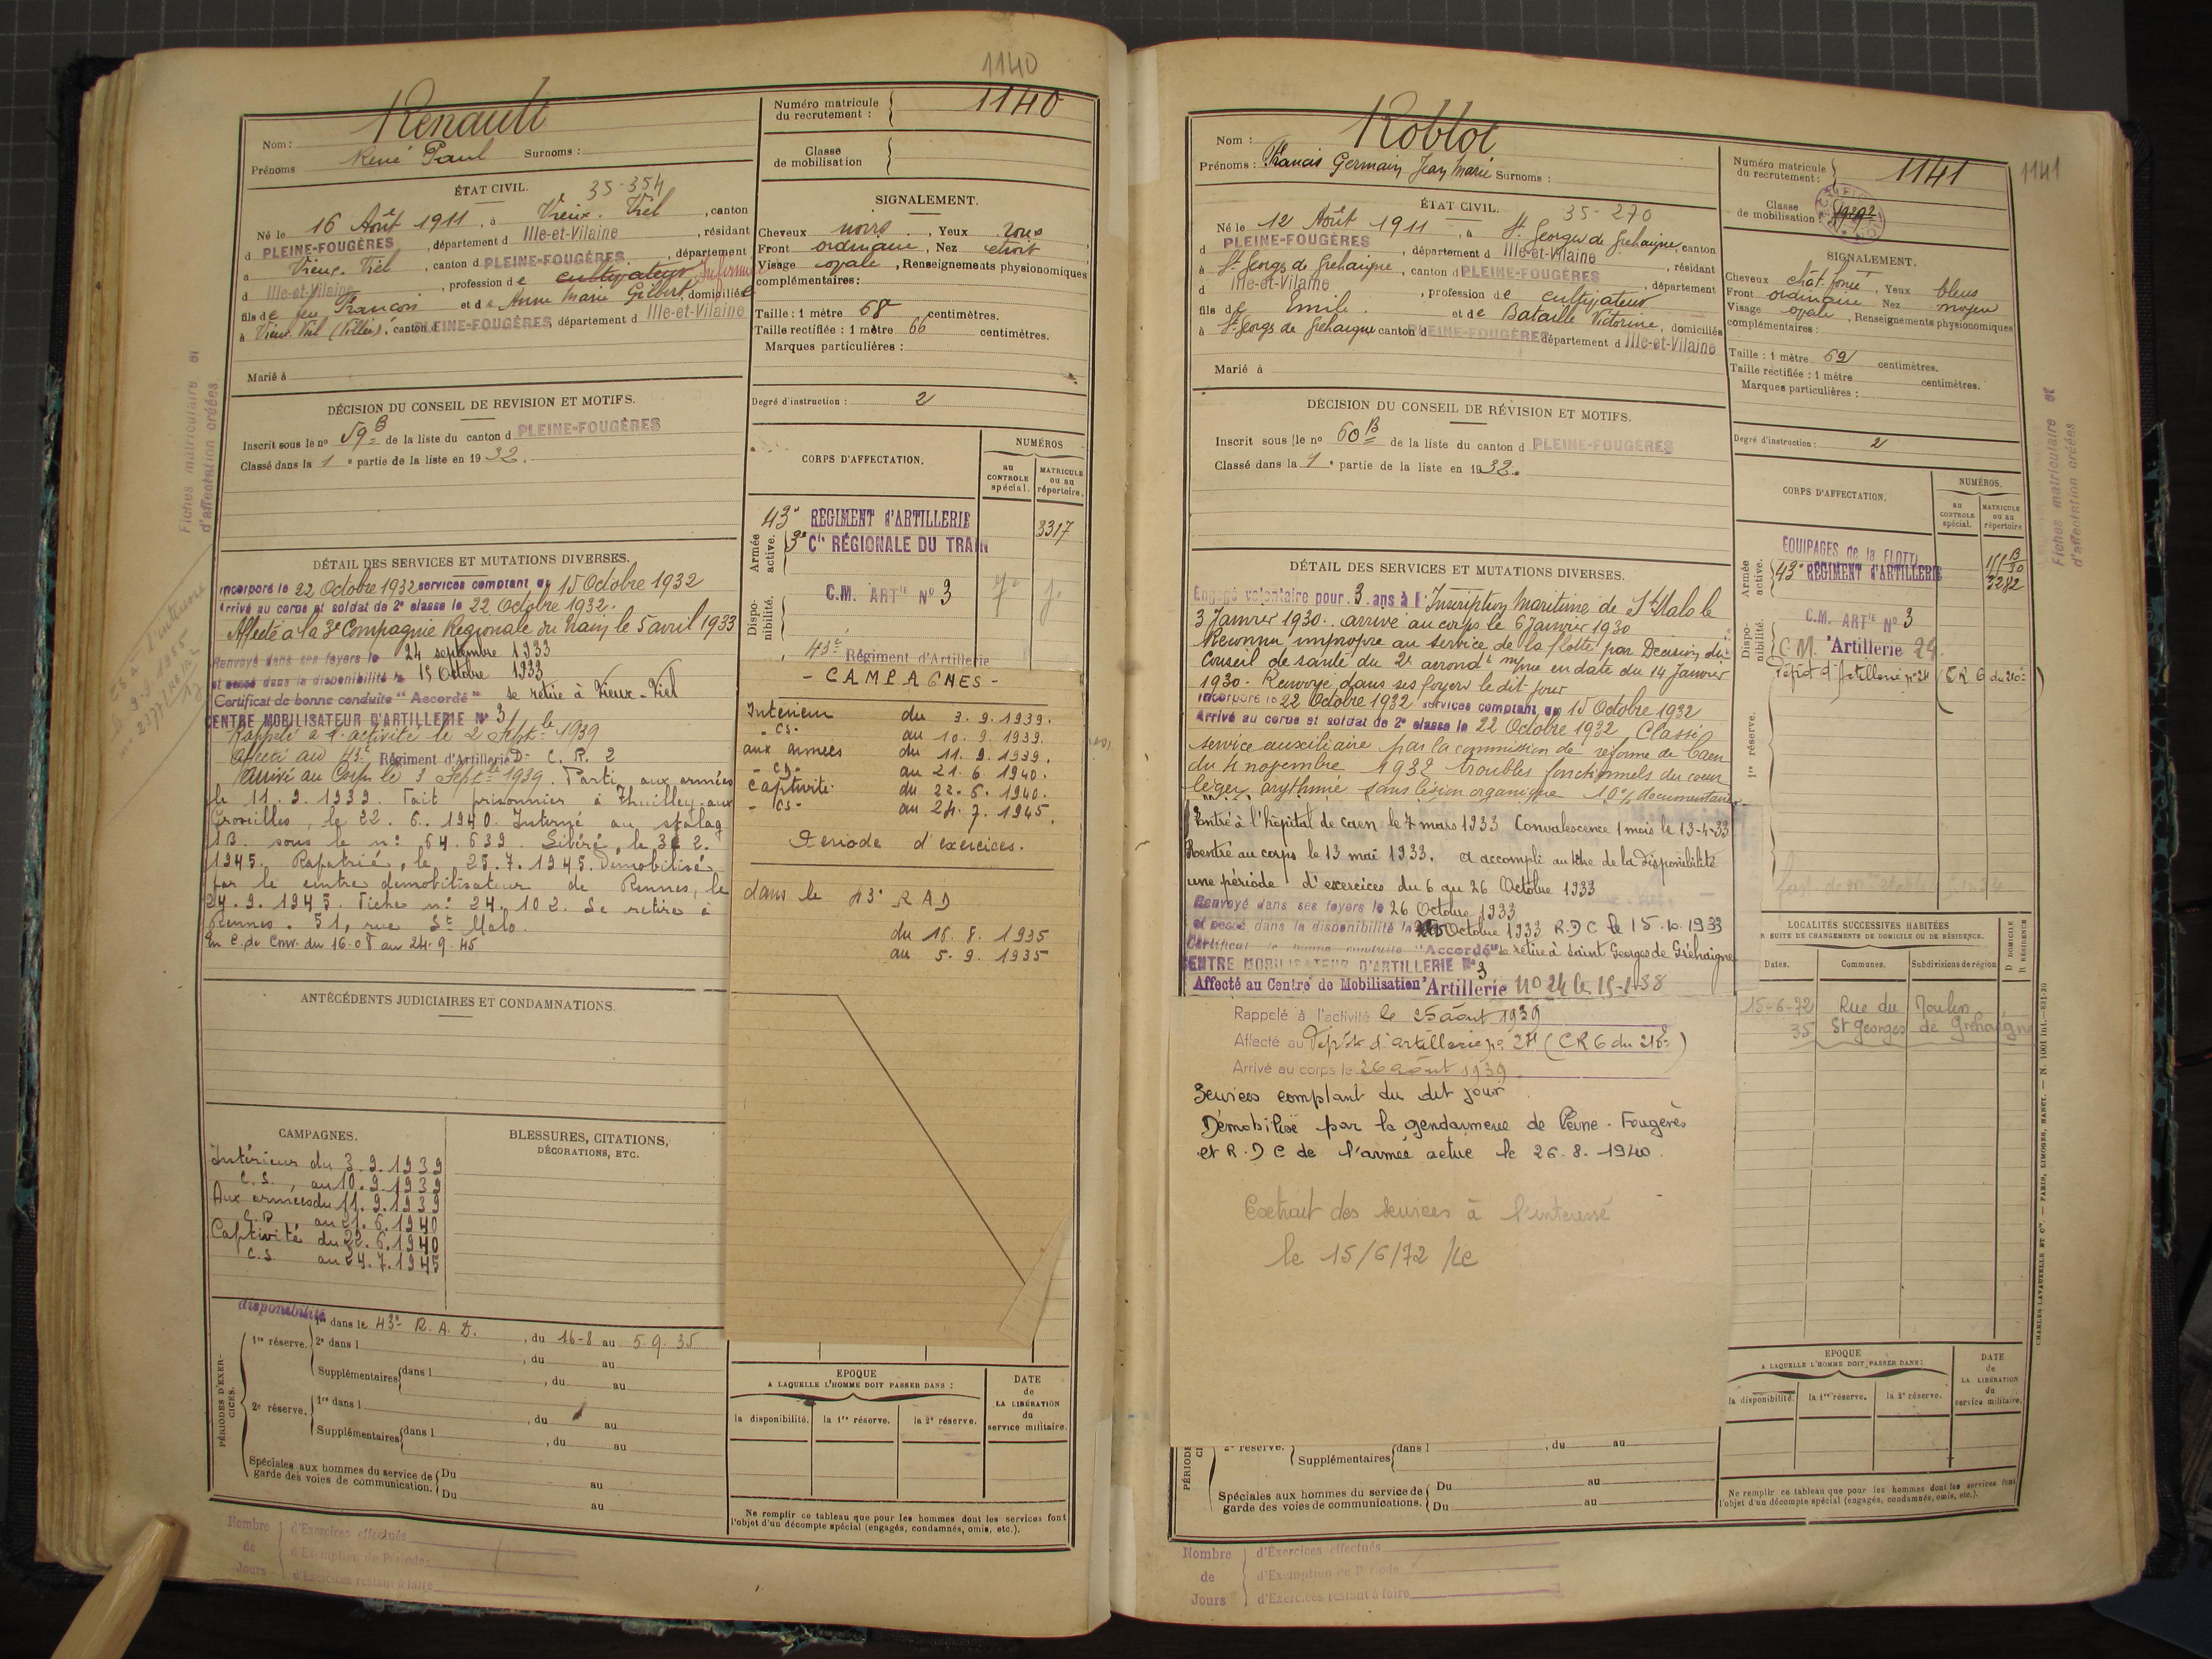 1140
Nom : Renault
Prénoms René Paul Surnoms :
Numéro matricule du recrutement : 1140
Classe de mobilisation
ÉTAT CIVIL. 35-354
Né le 16 Août 1911, à Vieux-Viel, canton
d PLEINE-FOUGÈRES, département d Ille-et-Vilaine, résidant
à Vieux-Viel, canton d PLEINE-FOUGÈRES, département
d Ille-et-Vilaine, profession de cultivateur
fils de feu François et de Anne Marie Gilbert, domiciliée
à Vieux Viel, canton PLEINE-FOUGÈRES, département d Ille-et-Vilaine
Marié à
SIGNALEMENT.
Cheveux noirs, Yeux roux
Front ordinaire, Nez étroit
Visage ovale, Renseignements physionomiques
complémentaires :
Taille : 1 mètre 68 centimètres.
Taille rectifiée : 1 mètre 66 centimètres.
Marques particulières :
Degré d'instruction : 2
DÉCISION DU CONSEIL DE REVISION ET MOTIFS.
Inscrit sous le n° 59 B de la liste du canton d PLEINE-FOUGÈRES
Classé dans la 1e partie de la liste en 1932.
CORPS D'AFFECTATION.
NUMÉROS
au CONTROLE spécial.
MATRICULE ou au répertoire.
Armée active.
43e RÉGIMENT d'ARTILLERIE 3317
3e Cie RÉGIONALE DU TRAIN
Disponibilité.
C.M. ARTIE N° 3
43e Régiment d'Artillerie
Fiches matriculaire et d'affectation créées
DÉTAIL DES SERVICES ET MUTATIONS DIVERSES.
Incorporé le 22 Octobre 1932 services comptant du 15 Octobre 1932
Arrivé au corps et soldat de 2e classe le 22 Octobre 1932.
Affecté à la 3e Compagnie Régionale du Train le 5 avril 1933
Renvoyé dans ses foyers le 24 septembre 1933
et passé dans la disponibilité le 15 Octobre 1933
Certificat de bonne conduite "Accordé" se retire à Vieux-Viel
CENTRE MOBILISATEUR D'ARTILLERIE N° 3
Rappelé à l'activité le 2 Septbre 1939
affecté au 43e Régiment d'Artillerie D. C. R. 2
Arrivé au Corps le 3 Septbre 1939. Parti aux armées
le 11.9.1939. Fait prisonnier à Thuilley-aux
Groseilles, le 22.6.1940. Interné au stalag
1B. sous le n: 64.639. Libéré, le 2.
1945. Rapatrié, le 25.7.1945. Démobilisé
par le centre démobilisateur de Rennes, le
24.9.1945. Fiche n: 24.102. Se retire à
Rennes. 51, rue St Malo.
En C. de Conv. du 16-08 au 24.9.45
- CAMPAGNES -
Intérieur du 3.9.1939.
- CS - au 10.9.1939.
aux armées du 11.9.1939.
- CD - au 21.6.1940.
Captivité du 22.6.1940.
- CS - au 24.7.1945.
Période d'exercices.
dans le 43e RAD
du 16.8.1935
au 5.9.1935
ANTÉCÉDENTS JUDICIAIRES ET CONDAMNATIONS.
CAMPAGNES.
Intérieur du 3.9.1939
C.S., au 10.9.1939
Aux armées du 11.9.1939
C.D au 21.6.1940
Captivité du 22.6.1940
C.S. au 24.7.1945
BLESSURES, CITATIONS, DÉCORATIONS, ETC.
disponibilité
PÉRIODES D'EXERCICES.
1re réserve. 1re dans le 43e R.A.D., du 16-8 au 5.9.35
2e dans l , du au
Supplémentaires dans l , du au
2e réserve. 1re dans l , du au
Supplémentaires dans l , du au
Spéciales aux hommes du service de garde des voies de communication. Du au
Du au
EPOQUE A LAQUELLE L'HOMME DOIT PASSER DANS :
la disponibilité. la 1re réserve. la 2e réserve.
DATE de LA LIBÉRATION du service militaire.
Ne remplir ce tableau que pour les hommes dont les services font
l'objet d'un décompte spécial (engagés, condamnés, omis, etc.).
Nombre de Jours
d'Exercices effectués
d'Exemption de Période
d'Exercices restant à faire
Nom : Roblot
Prénoms : Francis Germain Jean Marie Surnoms :
Numéro matricule du recrutement : 1141
1141
Classe de mobilisation
ÉTAT CIVIL. 35-270
Né le 12 Août 1911, à St Georges de Gréhaigne, canton
d PLEINE-FOUGÈRES, département d Ille-et-Vilaine, résidant
à St Georges de Gréhaigne, canton d PLEINE-FOUGÈRES, département
d Ille-et-Vilaine, profession de cultivateur
fils de Emile et de Bataille Victorine, domiciliés
à St Georges de Gréhaigne canton d PLEINE-FOUGÈRES département d Ille-et-Vilaine
Marié à
SIGNALEMENT.
Cheveux chât. foncé, Yeux bleus
Front ordinaire Nez moyen
Visage ovale, Renseignements physionomiques
complémentaires :
Taille : 1 mètre 62 centimètres.
Taille rectifiée : 1 mètre centimètres.
Marques particulières :
Degré d'instruction : 2
DÉCISION DU CONSEIL DE RÉVISION ET MOTIFS.
Inscrit sous le n° 60 B de la liste du canton d PLEINE-FOUGÈRES
Classé dans la 1e partie de la liste en 1932.
CORPS D'AFFECTATION.
NUMÉROS.
au CONTROLE spécial.
MATRICULE ou au répertoire
Armée active.
EQUIPAGES de la FLOTTE
43e RÉGIMENT D'ARTILLERIE 3282
Disponibilité.
C.M. ARTIE N° 3
C.M. Artillerie 24.
Dépôt d'Artillerie n° 24 (CR 6 du 210e)
1re réserve.
Fiches matriculaire et d'affectation créées
DÉTAIL DES SERVICES ET MUTATIONS DIVERSES.
Engagé volontaire pour 3 ans à l'Inscription Maritime de St Malo le
3 Janvier 1930. arrivé au corps le 6 Janvier 1930
Reconnu impropre au service de la flotte par Décision du
Conseil de santé du 2e arrondt mme en date du 14 Janvier
1930. Renvoyé dans ses foyers le dit jour
Incorporé le 22 Octobre 1932 services comptant du 15 Octobre 1932
Arrivé au corps et soldat de 2e classe le 22 Octobre 1932 Classé
service auxiliaire par la commission de réforme de Caen
du 4 novembre 1932 troubles fonctionnels du coeur
léger arythmie sans lésion organique 10% documentaire
Entré à l'hôpital de Caen le 7 mars 1933 Convalescence 1 mois le 13-4-33
Rentré au corps le 13 mai 1933. A accompli au titre de la disponibilité
une période d'exercices du 6 au 26 Octobre 1933
Renvoyé dans ses foyers le 26 Octobre 1933
et passé dans la disponibilité le Octobre 1933 R.D.C le 15.10.1933
Certificat de bonne conduite "Accordé" se retire à Saint Georges de Gréhaigne
CENTRE MOBILISATEUR D'ARTILLERIE N° 3
Affecté au Centre de Mobilisation Artillerie N° 24 le 15-1-38
Rappelé à l'activité le 25 août 1939
Affecté au Dépôt d'artillerie n° 24 (CR 6 du 210e)
Arrivé au corps le 26 août 1939
Services comptant du dit jour
Démobilisé par la gendarmerie de Pleine-Fougères
et R.D.C de l'armée active le 26.8.1940.
Extrait des services à l'intéressé
le 15/6/72
LOCALITÉS SUCCESSIVES HABITÉES
PAR SUITE DE CHANGEMENTS DE DOMICILE OU DE RÉSIDENCE.
Dates. Communes. Subdivisions de région D DOMICILE R RÉSIDENCE
15-6-72 Rue du Moulin
35 St Georges de Gréhaigne
EPOQUE A LAQUELLE L'HOMME DOIT PASSER DANS :
la disponibilité. la 1re réserve. la 2e réserve.
DATE de LA LIBÉRATION du service militaire.
2e réserve. Supplémentaires dans l , du au
Spéciales aux hommes du service de garde des voies de communications. Du au
Du au
Ne remplir ce tableau que pour les hommes dont les services font
l'objet d'un décompte spécial (engagés, condamnés, omis, etc.).
CHARLES-LAVAUZELLE ET Cie. — PARIS, LIMOGES, NANCY. — N. 1001 int.—831-30
Nombre de Jours
d'Exercices effectués
d'Exemption de Période
d'Exercices restant à faire